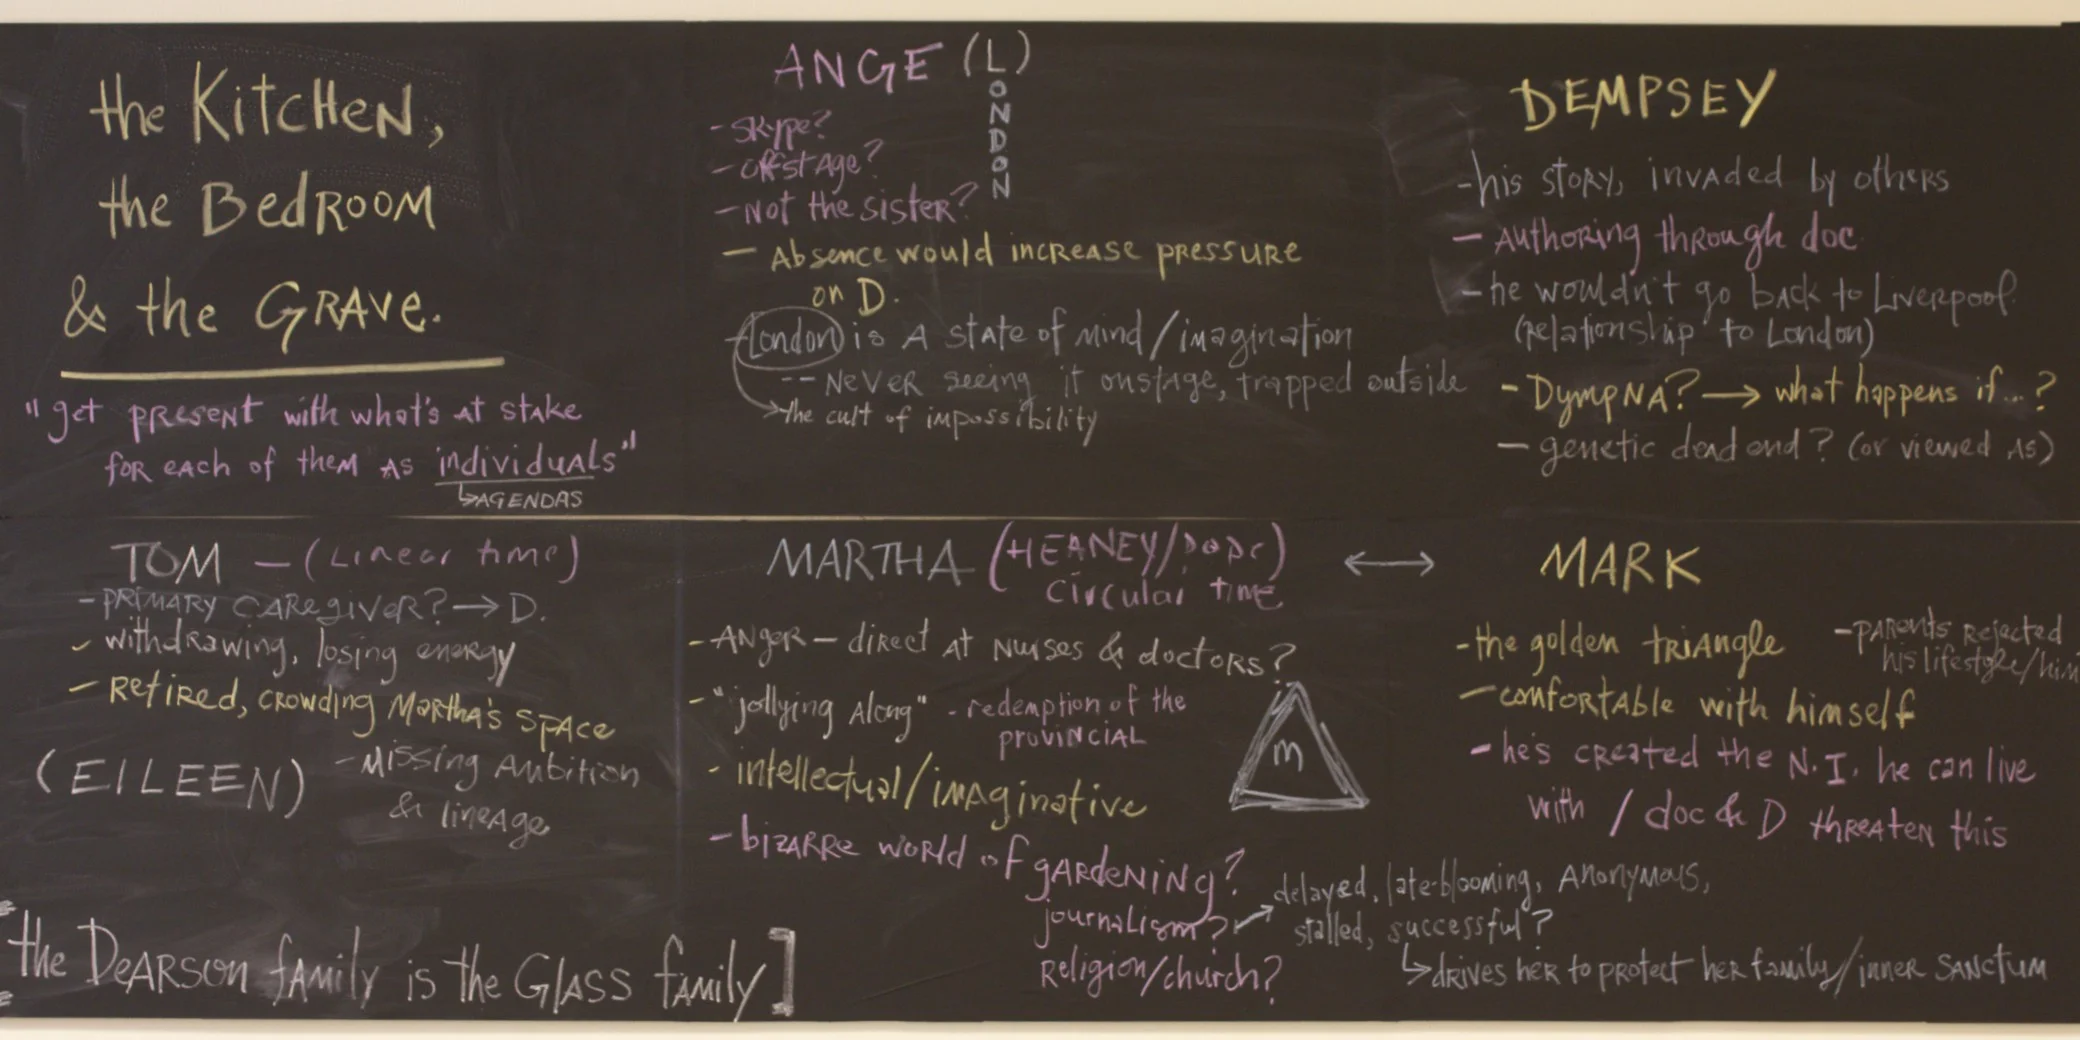 the KitcHeN,
the BedROOM
& the GRAVe.
"get pResent with what's at stake
foR each of them as individuals"
↳AGENDAS
ANGE (L)
oNDoN
-Skype?
-offstage?
-Not the sister?
- Absence would increase pressure
on D.
-London is A state of mind/imagination
-- Never seeing it onstage, trapped outside
→the cult of impossibility
DEMPSEY
-his story, invaded by others
- Authoring through doc
-he wouldn't go back to Liverpool
(relationship to London)
- DympNA? → what happens if...?
- genetic dead end? (or viewed as)
TOM - (Linear time)
-PRIMARY CAREgiVER? → D.
- withdrawing, losing energy
- Retired, crowding Martha's space
(EILEEN)
-Missing Ambition
& lineage
[the DeARSON family is the GlASS family]
MARTHA (HEANEY/
Circular time
- ANger - direct at Nurses & doctors?
- "jollying Along" - redemption of the
provincial
- intellectual/imaginative
- bizarre world of gardening?
journalism? → delayed, late-blooming, Anonymous,
stalled, successful?
↳drives her to protect her family/inner sanctum
Religion/church?
m
↔
MARK
-the golden triangle
-comfortable with himself
- he's created the N.I. he can live
with / doc & D threaten this
-parents rejected
his lifestyle/him